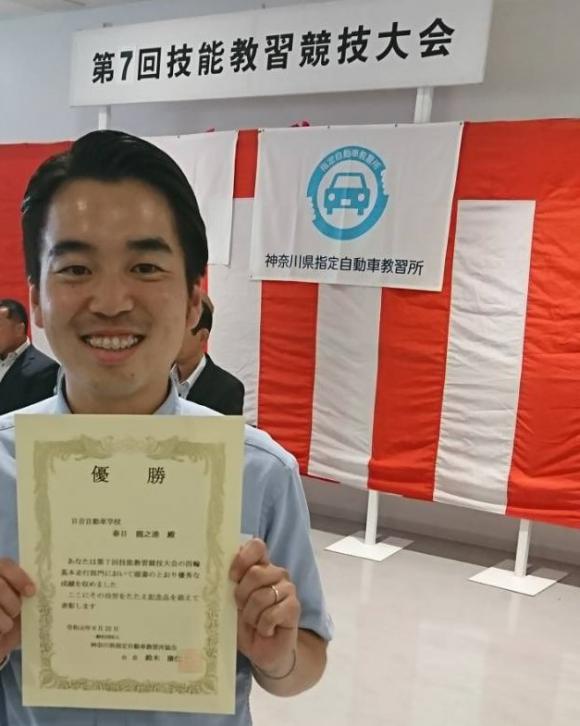 第7回技能教習競技大会
指定自動車教習所
神奈川県指定自動車教習所
優勝
日吉自動車学校
春日 龍之港 殿
あなたは第7回技能教習競技大会の四輪
基本走行部門において頭書のとおり優秀な
成績を収めました
ここにその功労をたたえ記念品を添えて
表彰します
令和元年6月22日
一般社団法人
神奈川県指定自動車教習所協会
会長 鈴木